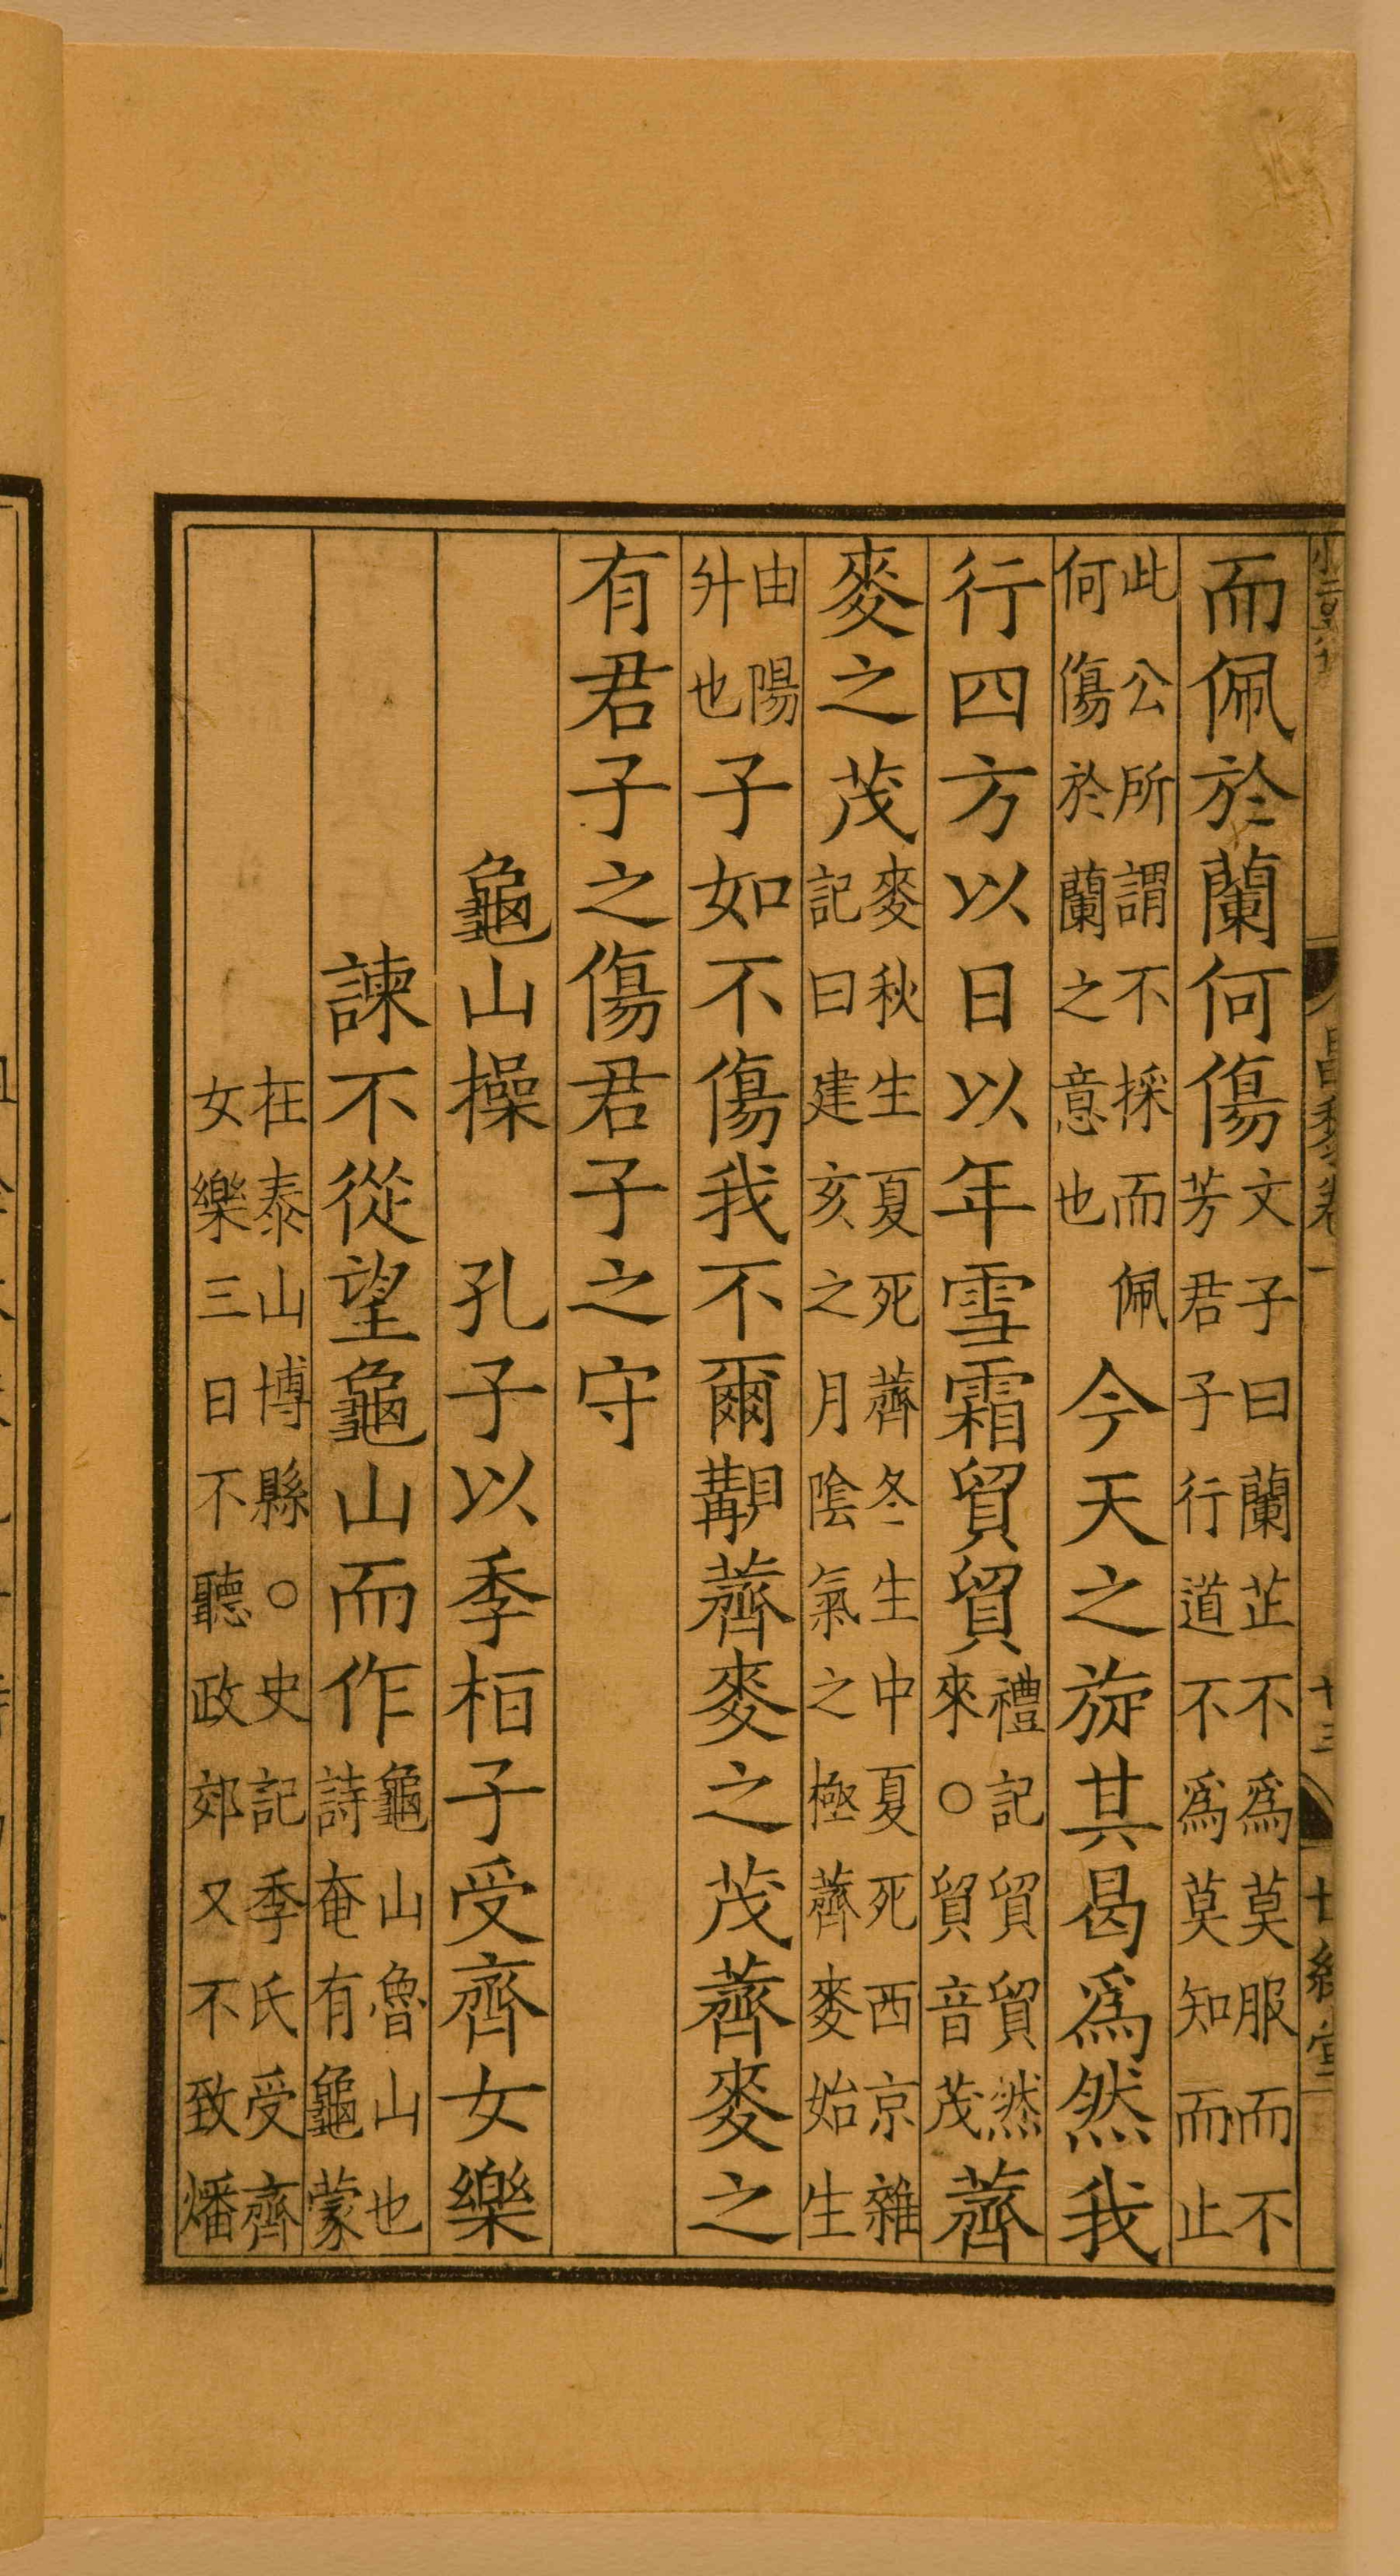 而佩於蘭何傷文子曰蘭芷不爲莫服而不芳君子行道不爲莫知而止
此公所謂不採而佩何傷於蘭之意也今天之旋其曷爲然我
行四方以日以年雪霜貿貿禮記貿貿然來○貿音茂薺
麥之茂麥秋生夏死薺冬生中夏死西京雜記曰建亥之月陰氣之極薺麥始生
由陽升也子如不傷我不爾覯薺麥之茂薺麥之
有君子之傷君子之守
龜山操 孔子以季桓子受齊女樂
諫不從望龜山而作龜山魯山也詩奄有龜蒙
在泰山博縣○史記季氏受齊女樂三日不聽政郊又不致燔